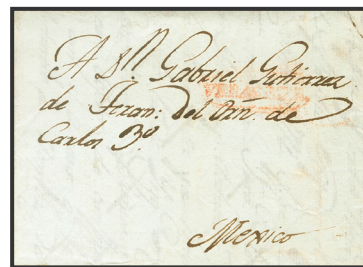 A Dn. Gabriel Gutierrez
de Teran: del Orn. de
Carlos 3º
Mexico